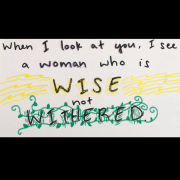 When I look at you, I see
a woman who is
WISE
not
WITHERED